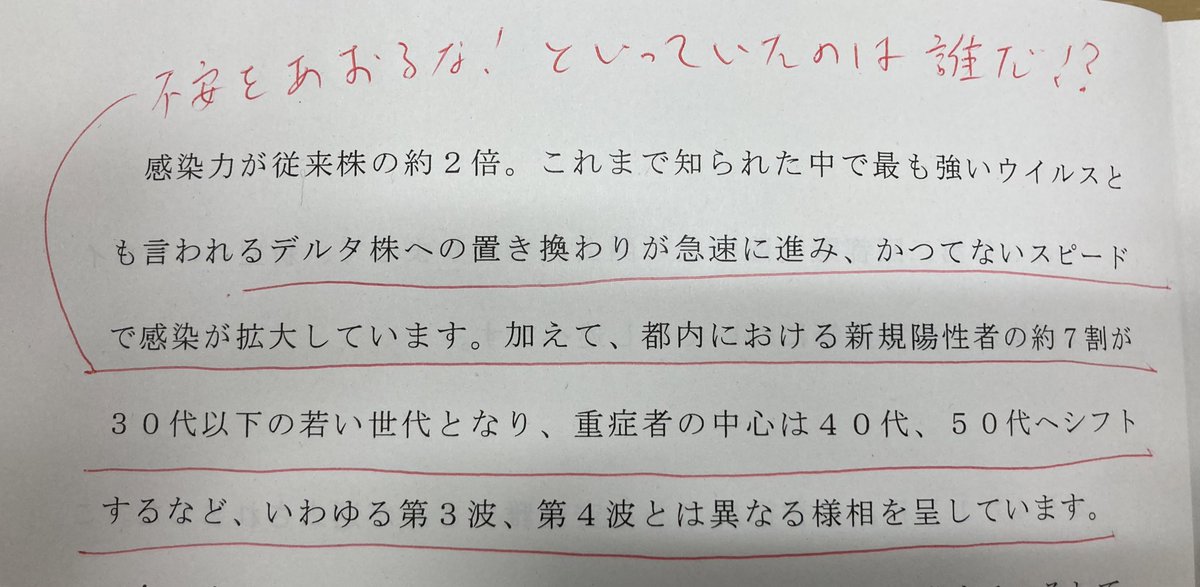 不安をあおるな!といっていたのは誰だ!?
感染力が従来株の約２倍。これまで知られた中で最も強いウイルスと
も言われるデルタ株への置き換わりが急速に進み、かつてないスピード
で感染が拡大しています。加えて、都内における新規陽性者の約７割が
３０代以下の若い世代となり、重症者の中心は４０代、５０代へシフト
するなど、いわゆる第３波、第４波とは異なる様相を呈しています。